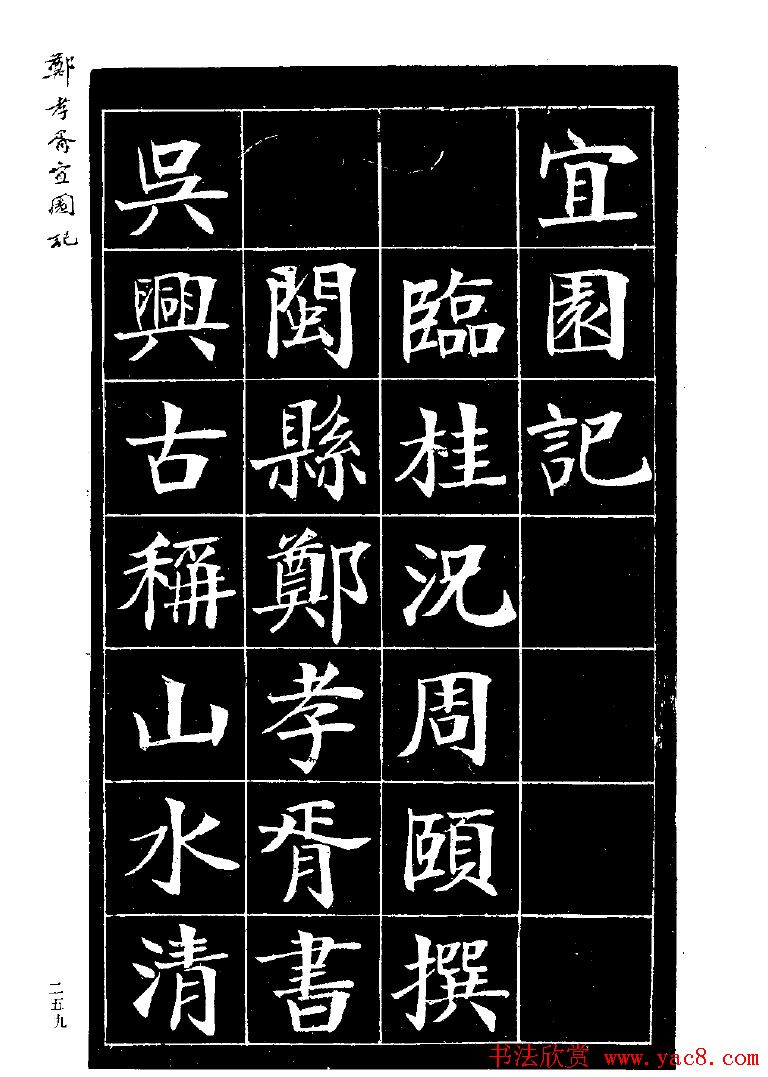 鄭孝胥宜園記
宜園記
臨桂況周頤撰
閩縣鄭孝胥書
吳興古稱山水清
二五九
书法欣赏 www.yac8.com